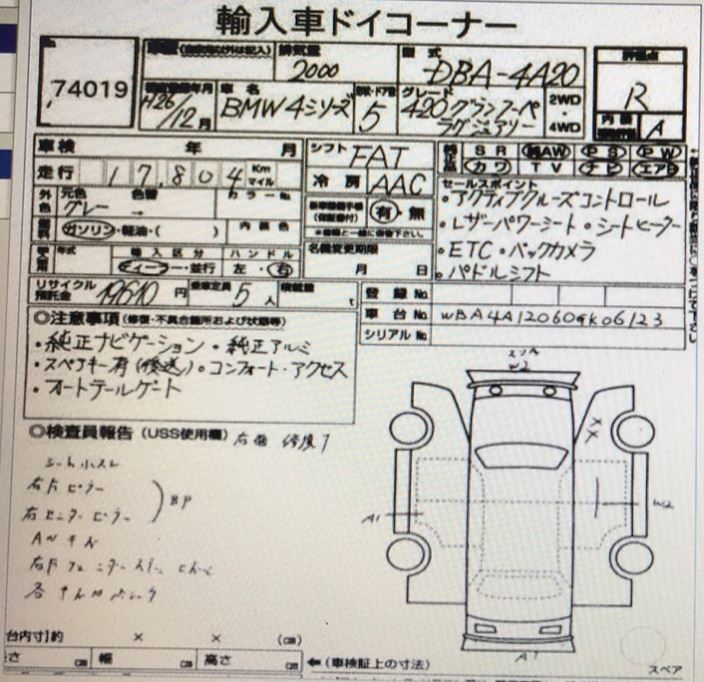 輸入車ドイコーナー
74019
排気量 2000
型式 DBA-4A20
評価点 R
内装 A
H26/12月
車名 BMW4シリーズ
5
グレード 420グランクーペ
ラグジュアリー
2WD・4WD
車検 年 月
シフト FAT
走行 17,804 Km マイル
冷房 AAC
SR AW PS PW
カワ TV ナビ エアB
外色 元色 グレー → 色替 カラーNo
ガソリン・軽油・( ) 内装色
有・無
年式 輸入区分 ハンドル
ディーラー・並行 左・右
名義変更期限
月 日
セールスポイント
・アクティブクルーズコントロール
・レザーパワーシート・シートヒーター
・ETC・バックカメラ
・パドルシフト
リサイクル預託金 19610円 乗車定員 5人 積載量 t
登録No.
車台No. WBA4A12060GK06123
シリアルNo.
◎注意事項(修復・不具合箇所および状態等)
・純正ナビゲーション・純正アルミ
・スペアキー有(後送)・コンフォート・アクセス
・オートテールゲート
◎検査員報告(USS使用欄)
右ピラー
右センターピラー
BP
W2
XX
A1
W2
A1
台内寸)約 × × (㎝)
長さ ㎝ 幅 ㎝ 高さ ㎝
←(車検証上の寸法)
スペア